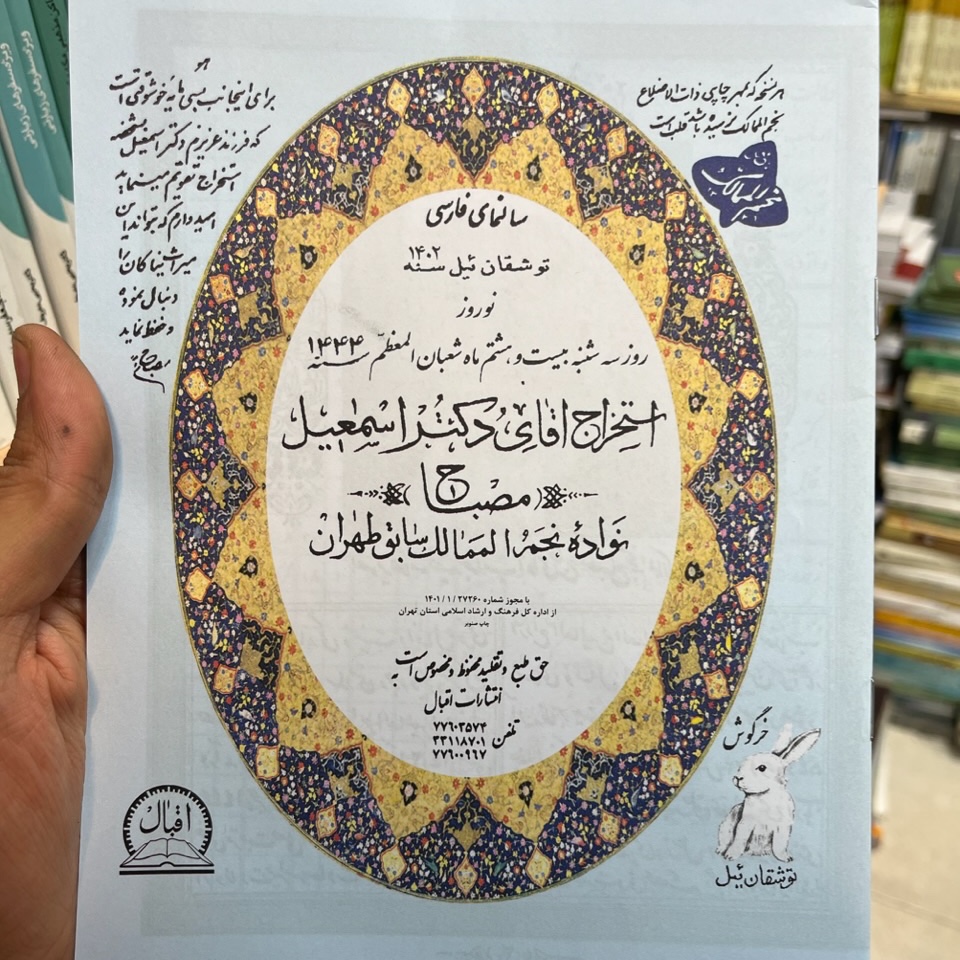 هو
برای اینجانب بسی مایه خوشوقتی است
که فرزند عزیزم دکتر اسمعیل شخصه
استخراج تقویم مینماید
امیدوارم که بتواند این
میراث نیاکان را
دنبال نموده
و حفظ نماید
مصباح
هر نسخه که بمهر چاپی ذات الاضلاع
نجم الممالک نرسیده باشد قلب است
نجم الممالک
سالنمای فارسی
توشقان ئیل سنه ۱۴۰۲
نوروز
روز سه شنبه بیست و هشتم ماه شعبان المعظّم سنه ۱۴۴۴
استخراج اقای دکتر اسمعیل
مصباح
نوادهٔ نجم الممالک سابق طهران
با مجوز شماره ۲۷۲۶۰ / ۱ / ۱۴۰۱
از اداره کل فرهنگ و ارشاد اسلامی استان تهران
چاپ صنوبر
حق طبع و تقلید محفوظ و مخصوص است به
انتشارات اقبال
تلفن ۷۷۶۰۳۵۷۴
۳۳۱۱۸۷۰۱
۷۷۶۰۰۹۶۷
اقبال
خرگوش
توشقان ئیل